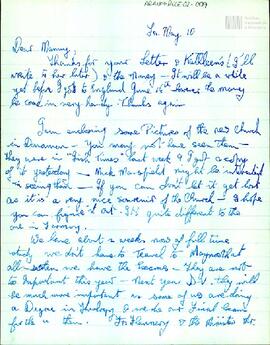 Sun May 10
Dear Mammy,
Thanks for your Letter & Kathleen's (I'll
write to her later) & the Money - It will be a while
yet before I go to England June 16th hence the money
be in very handy. Thanks again
I am enclosing some Pictures of the new Church
in - You may not have seen them -
they were in "Irish Times" last week & I got a copy
of it yesterday - Mick Mansfield might be interested
in seeing them - If you can don't let it get lost
as it is a very nice souvenir of the Church - I hope
you can figure it out. It's quite different to the
one in
We have about 2 weeks more of full time
study we don't have to travel to Maynooth at
all - then we have the Exams - they are not
so Important this year - Next year D.V. they will
be much more important as some of us are doing
a Degree in Theology & we do our Final Exams
for the then. Fr Flannery & the